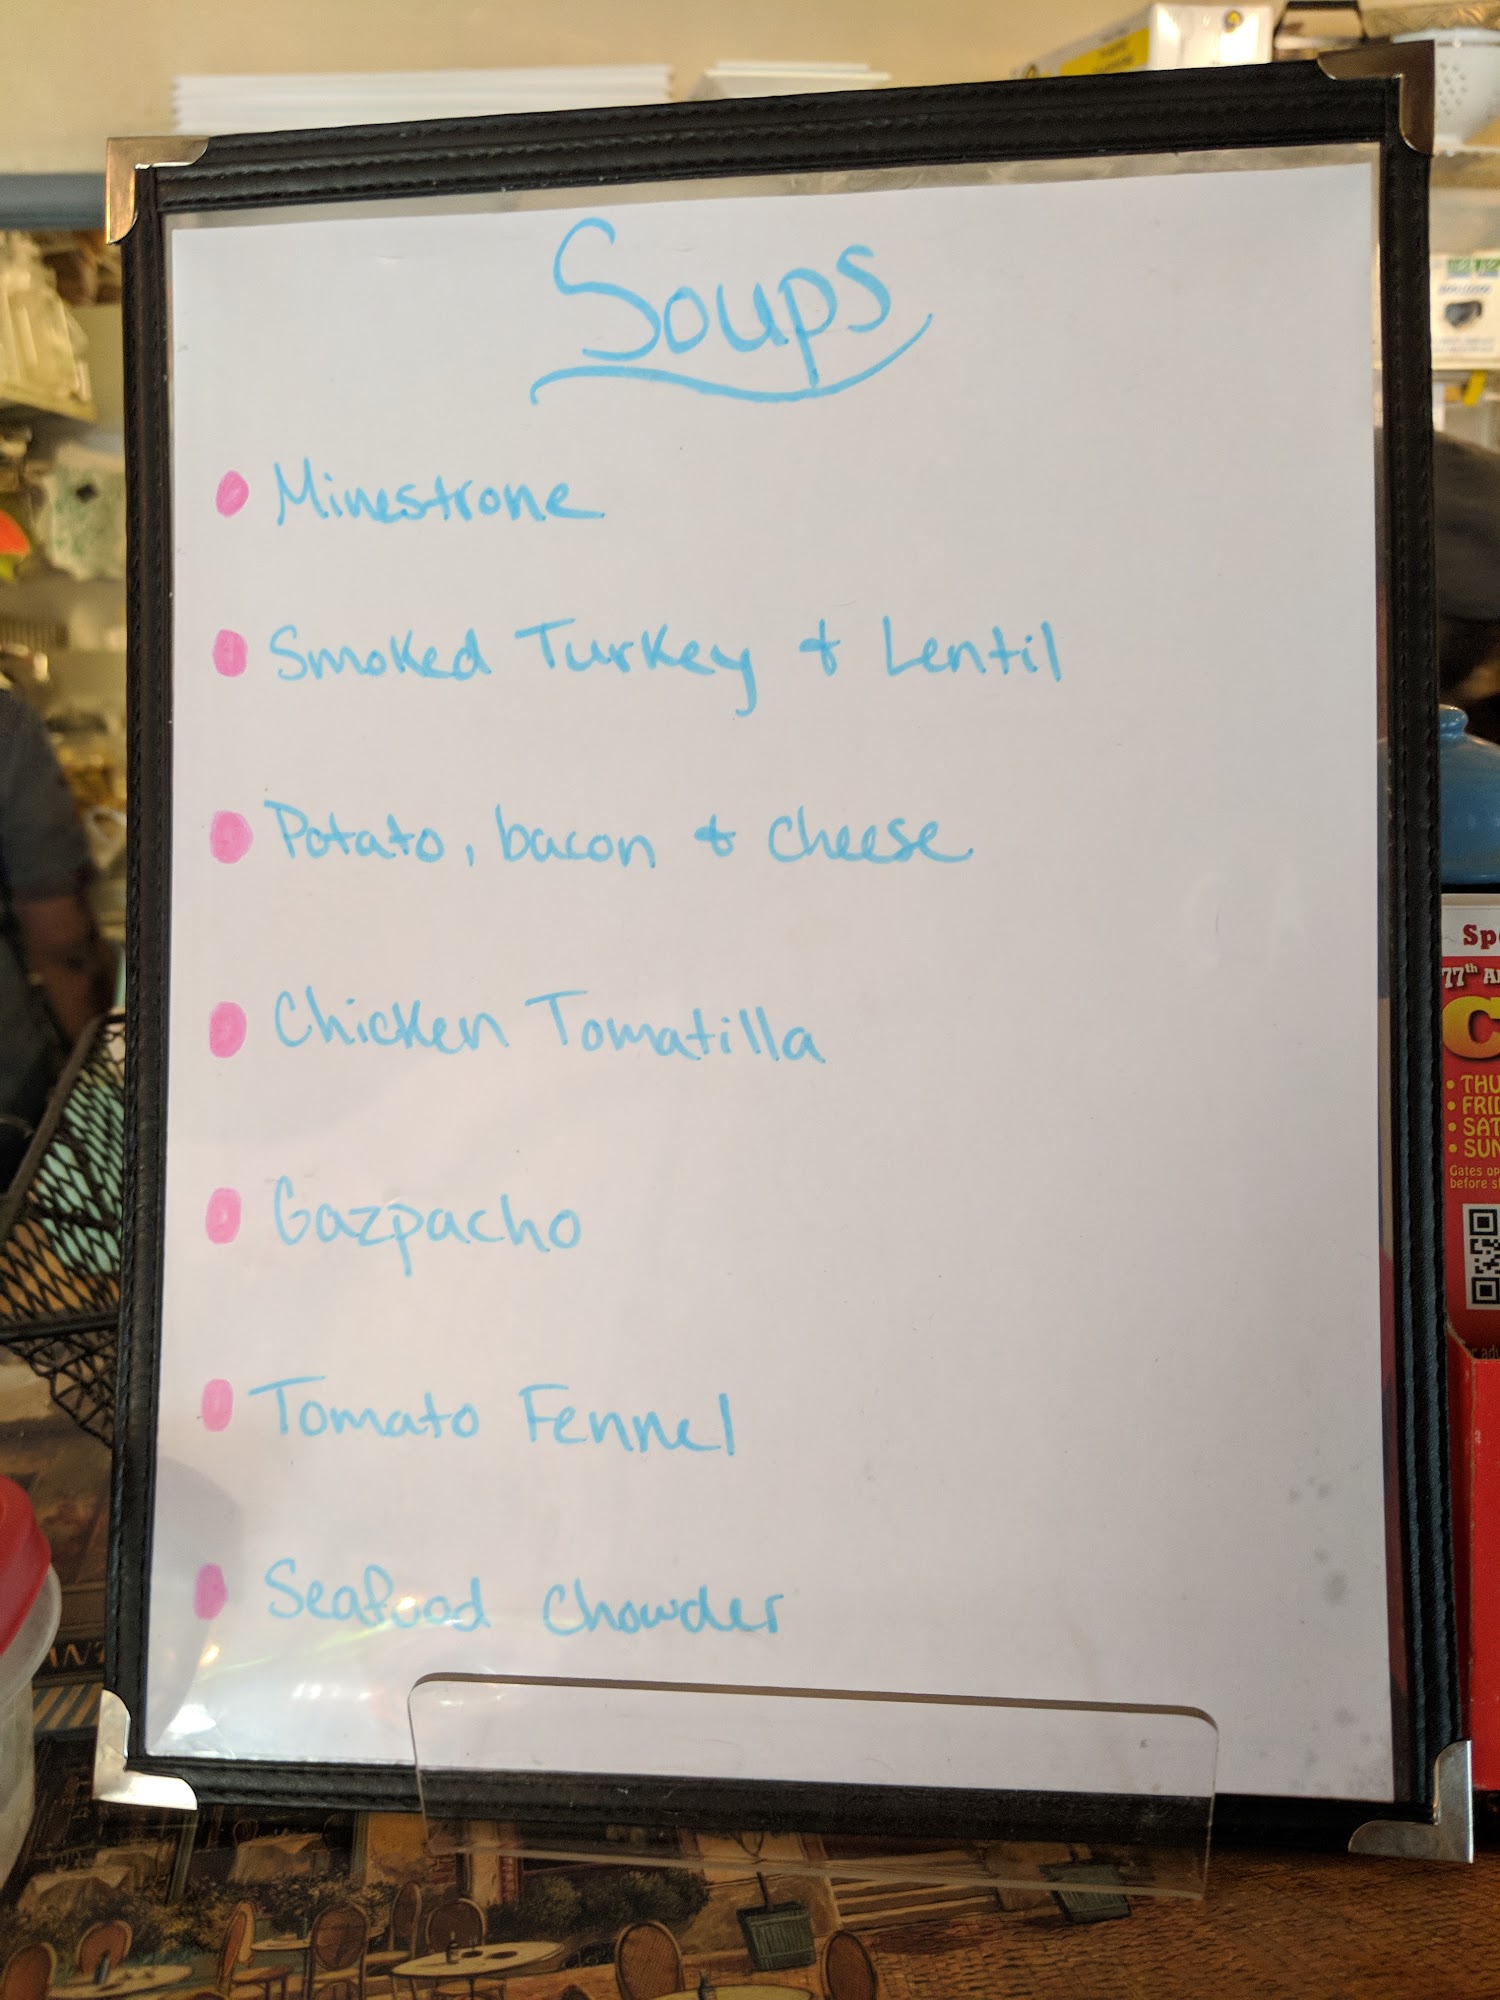 Soups
Minestrone
Smoked Turkey & Lentil
Potato, bacon & cheese
Chicken Tomatilla
Gazpacho
Tomato Fennel
Seafood Chowder
77th
• THU
• FRI
• SAT
• SUN
Gates
before